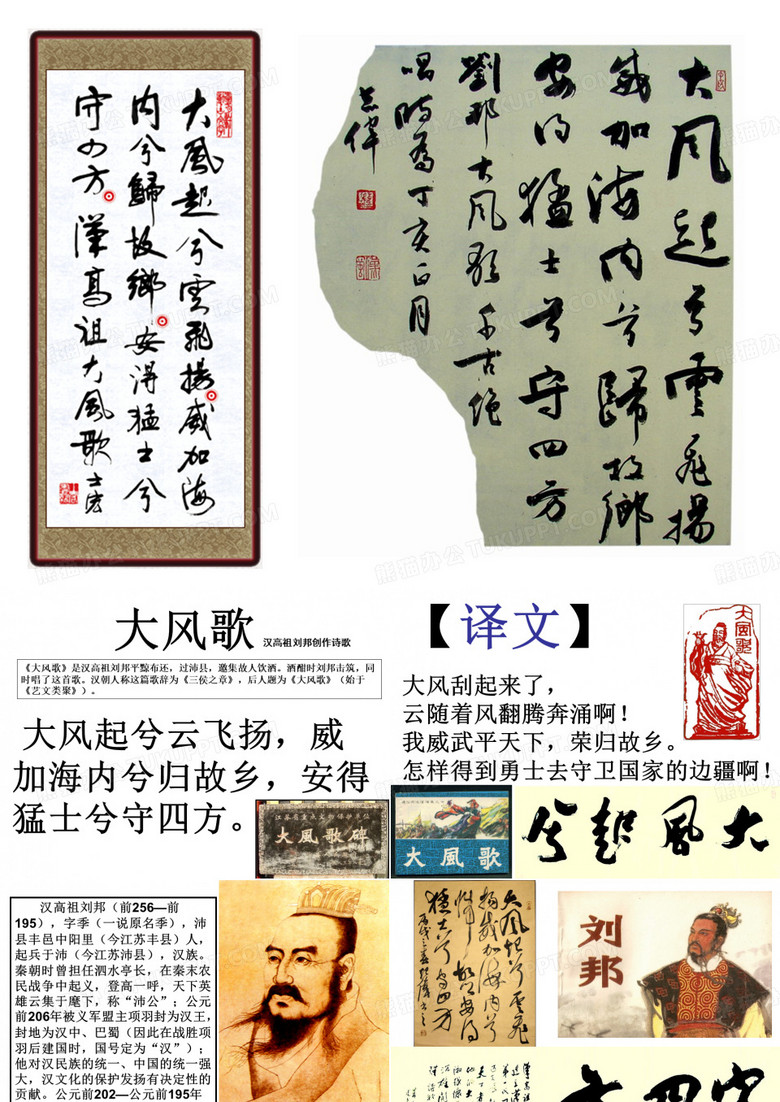 大風起兮雲飛揚威加海
内兮歸故鄉安得猛士兮
守四方漢高祖大風歌
大風起兮雲飛揚
威加海内兮歸故鄉
安得猛士兮守四方
劉邦大風歌千古絶
唱時為丁亥正月
大风歌 汉高祖刘邦创作诗歌
《大风歌》是汉高祖刘邦平黥布还，过沛县，邀集故人饮酒。酒酣时刘邦击筑，同
时唱了这首歌。汉朝人称这篇歌辞为《三侯之章》，后人题为《大风歌》（始于
《艺文类聚》）。
大风起兮云飞扬，威
加海内兮归故乡，安得
猛士兮守四方。
【译文】
大风刮起来了，
云随着风翻腾奔涌啊！
我威武平天下，荣归故乡。
怎样得到勇士去守卫国家的边疆啊！
大風歌
大風歌碑
大風歌
大風起兮
汉高祖刘邦（前256—前
195），字季（一说原名季），沛
县丰邑中阳里（今江苏丰县）人，
起兵于沛（今江苏沛县），汉族。
秦朝时曾担任泗水亭长，在秦末农
民战争中起义，登高一呼，天下英
雄云集于麾下，称“沛公”；公元
前206年被义军盟主项羽封为汉王，
封地为汉中、巴蜀（因此在战胜项
羽后建国时，国号定为“汉”）；
他对汉民族的统一、中国的统一强
大，汉文化的保护发扬有决定性的
贡献。公元前202—公元前195年
大風起兮雲飛
揚威加海内兮
歸故鄉安得
猛士兮守四方
刘邦
熊猫办公 TUKUPPT.COM